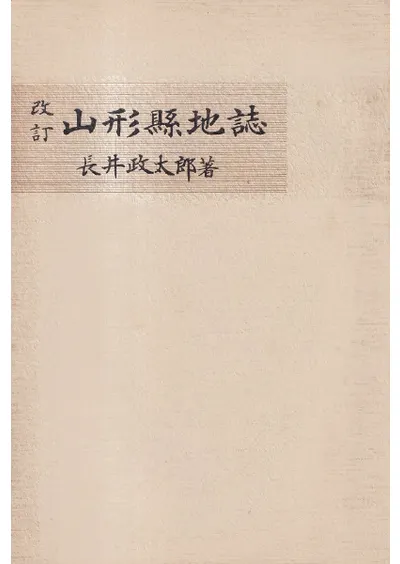 改訂 山形縣地誌
長井政太郎著